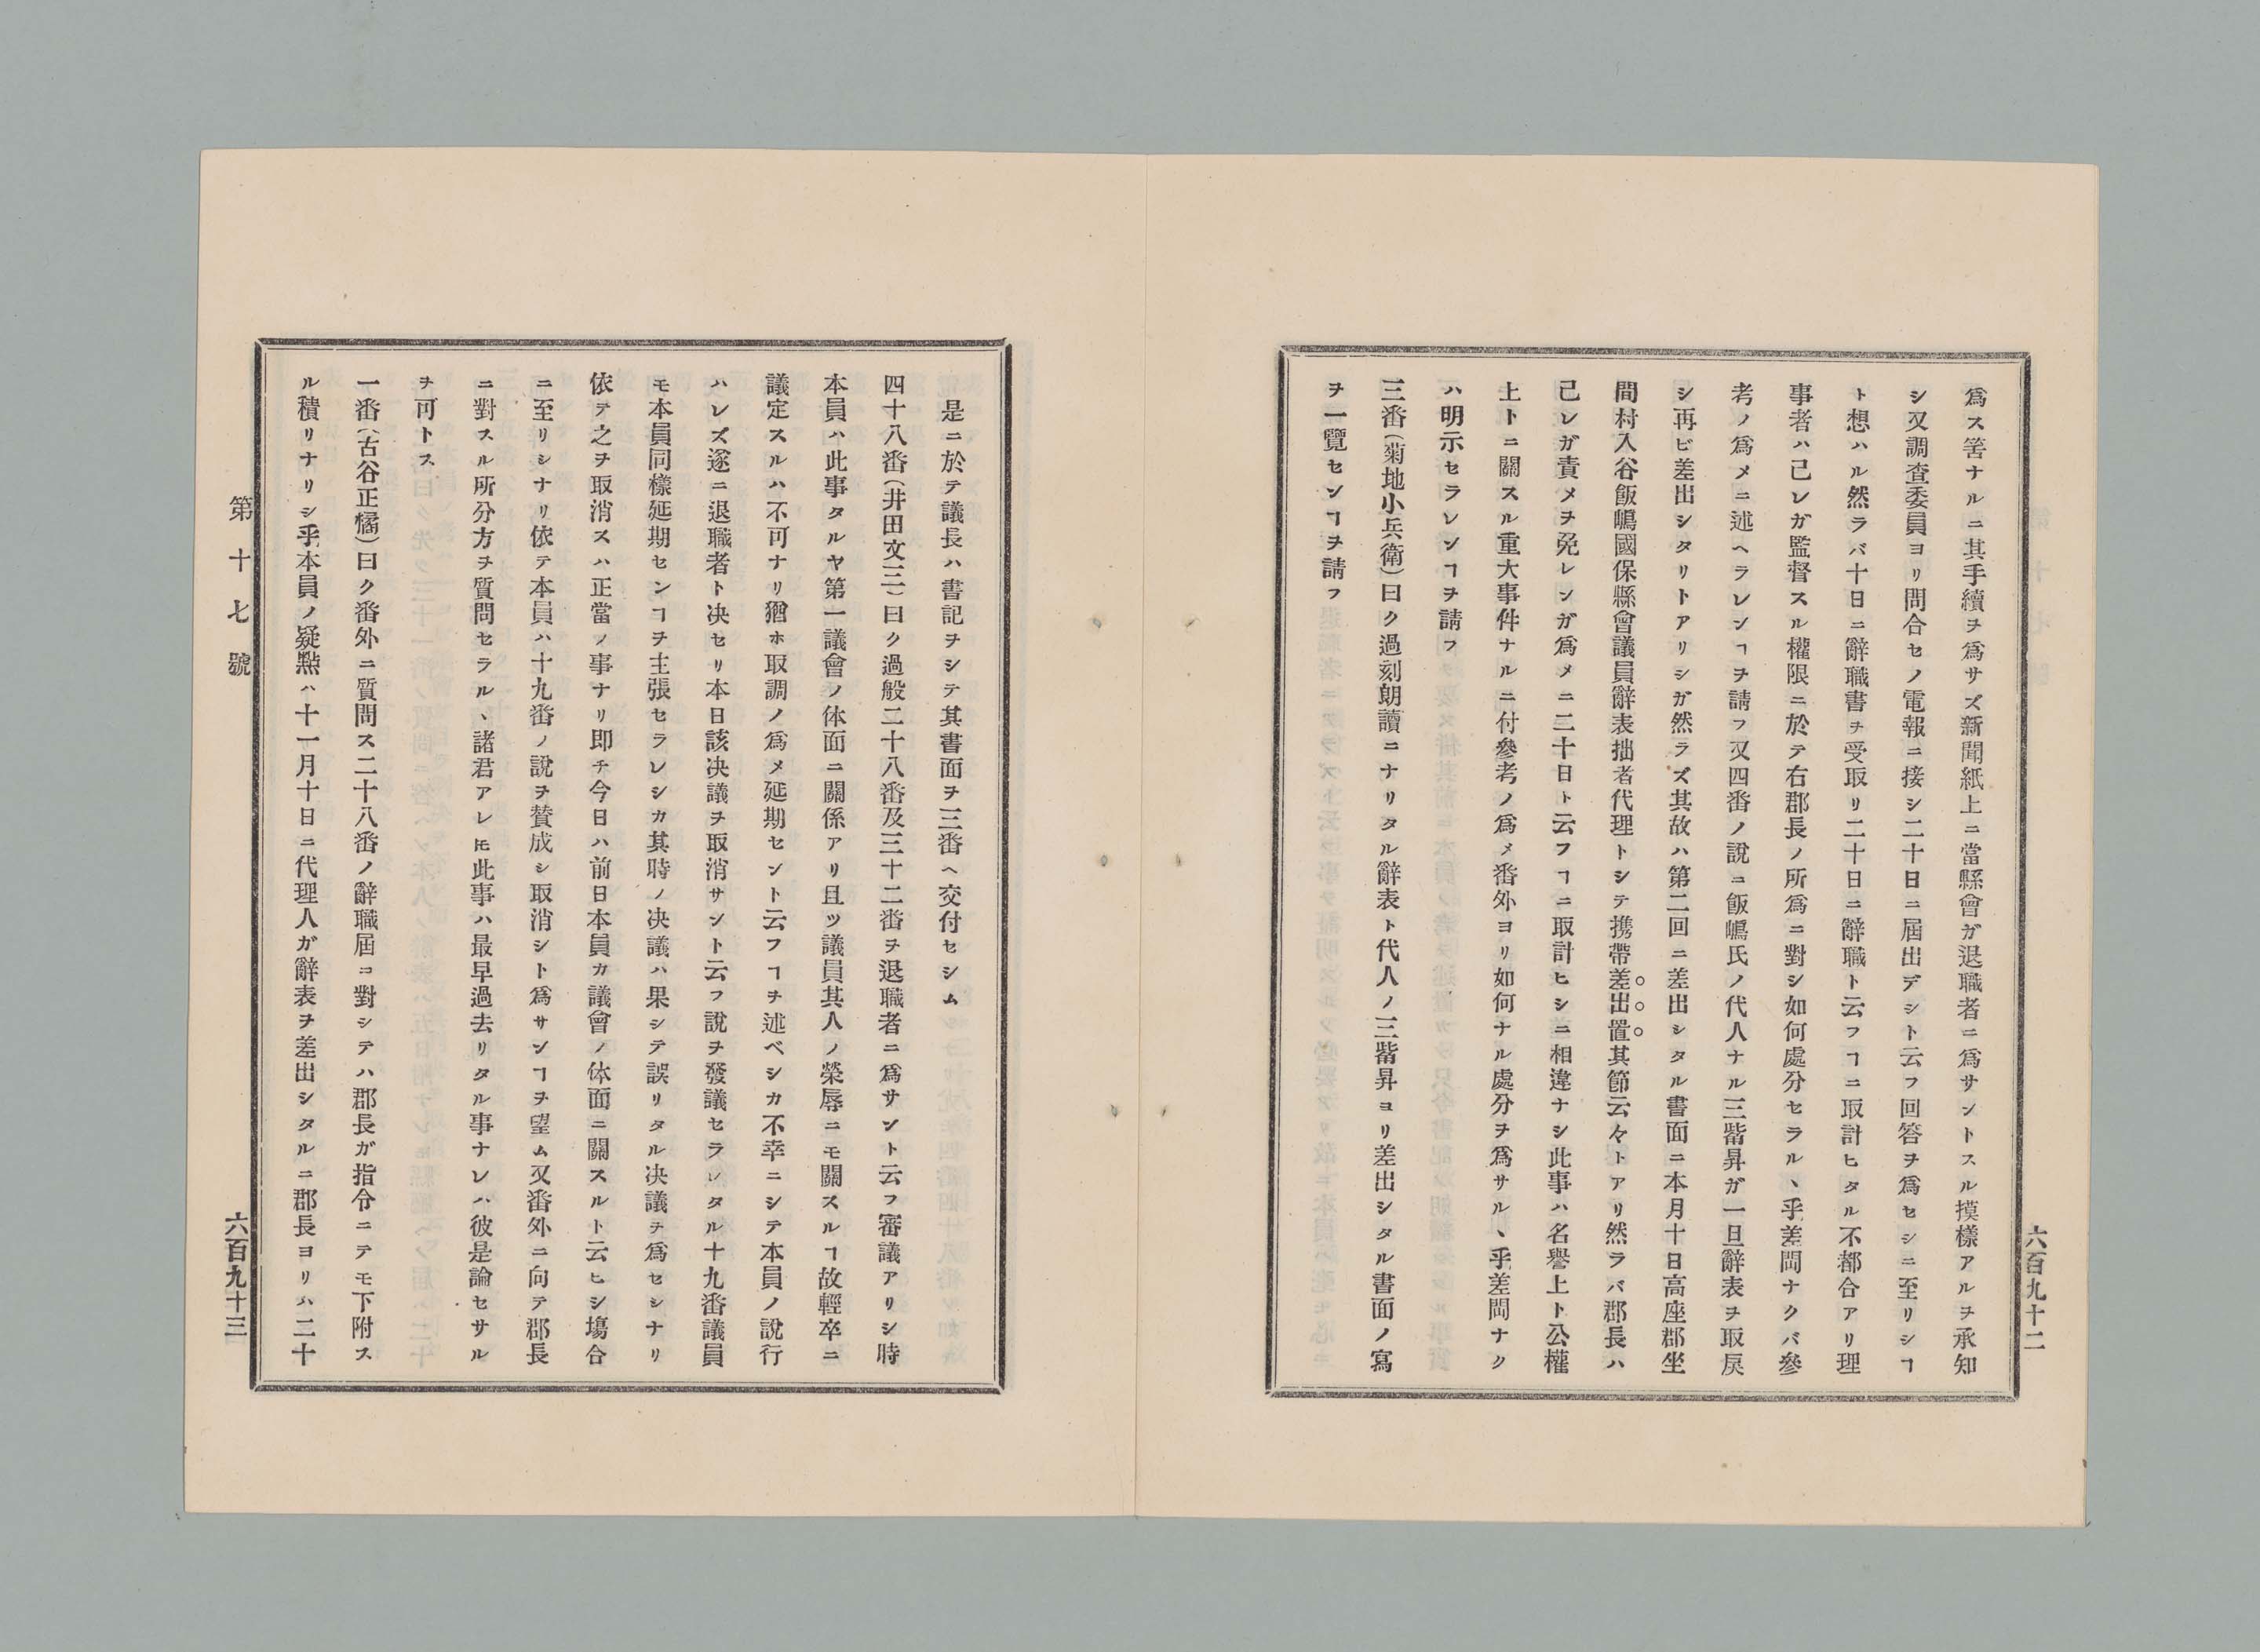 爲ス筈ナルニ其手續ヲ爲サズ新聞紙上ニ當縣會ガ退職者ニ爲サントスル摸樣アルヲ承知
シ又調査委員ヨリ問合セノ電報ニ接シ二十日ニ屆出デシト云フ回答ヲ爲セシニ至リシヿ
ト想ハル然ラバ十日ニ辭職書ヲ受取リ二十日ニ辭職ト云フヿニ取計ヒタル不都合アリ理
事者ハ己レガ監督スル權限ニ於テ右郡長ノ所爲ニ對シ如何處分セラルヽ乎差閊ナクバ參
考ノ爲メニ述ヘラレンヿヲ請フ又四番ノ說ニ飯嶋氏ノ代人ナル三觜昇ガ一旦辭表ヲ取戾
シ再ビ差出シタリトアリシガ然ラズ其故ハ第二回ニ差出シタル書面ニ本月十日高座郡坐
間村入谷飯嶋國保縣會議員辭表拙者代理トシテ携帶差出置其節云々トアリ然ラバ郡長ハ
己レガ責メヲ免レンガ爲メニ二十日ト云フヿニ取計ヒシニ相違ナシ此事ハ名譽上ト公權
上トニ關スル重大事件ナルニ付參考ノ爲メ番外ヨリ如何ナル處分ヲ爲サルヽ乎差閊ナク
ハ明示セラレンヿヲ請フ
三番（菊地小兵衛）曰ク過刻朗讀ニナリタル辭表ト代人ノ三觜昇ヨリ差出シタル書面ノ寫
ヲ一覽センヿヲ請フ
六百九十二
是ニ於テ議長ハ書記ヲシテ其書面ヲ三番ヘ交付セシム
四十八番（井田文三）曰ク過般二十八番及三十二番ヲ退職者ニ爲サント云フ審議アリシ時
本員ハ此事タルヤ第一議會ノ体面ニ關係アリ且ツ議員其人ノ榮辱ニモ關スルヿ故輕卒ニ
議定スルハ不可ナリ猶ホ取調ノ爲メ延期セント云フヿヲ述ベシカ不幸ニシテ本員ノ說行
ハレズ遂ニ退職者ト决セリ本日該决議ヲ取消サント云フ說ヲ發議セラレタル十九番議員
モ本員同樣延期センヿヲ主張セラレシカ其時ノ决議ハ果シテ誤リタル决議ヲ爲セシナリ
依テ之ヲ取消スハ正當ノ事ナリ即チ今日ハ前日本員カ議會ノ体面ニ關スルト云ヒシ塲合
ニ至リシナリ依テ本員ハ十九番ノ說ヲ賛成シ取消シト爲サンヿヲ望ム又番外ニ向テ郡長
ニ對スル所分方ヲ質問セラルヽ諸君アレ𪜈此事ハ最早過去リタル事ナレハ彼是論セサル
ヲ可トス
一番（古谷正橘）曰ク番外ニ質問ス二十八番ノ辭職屆ニ對シテハ郡長ガ指令ニテモ下附ス
ル積リナリシ乎本員ノ疑㸃ハ十一月十日ニ代理人ガ辭表ヲ差出シタルニ郡長ヨリハ二十
第十七號
六百九十三